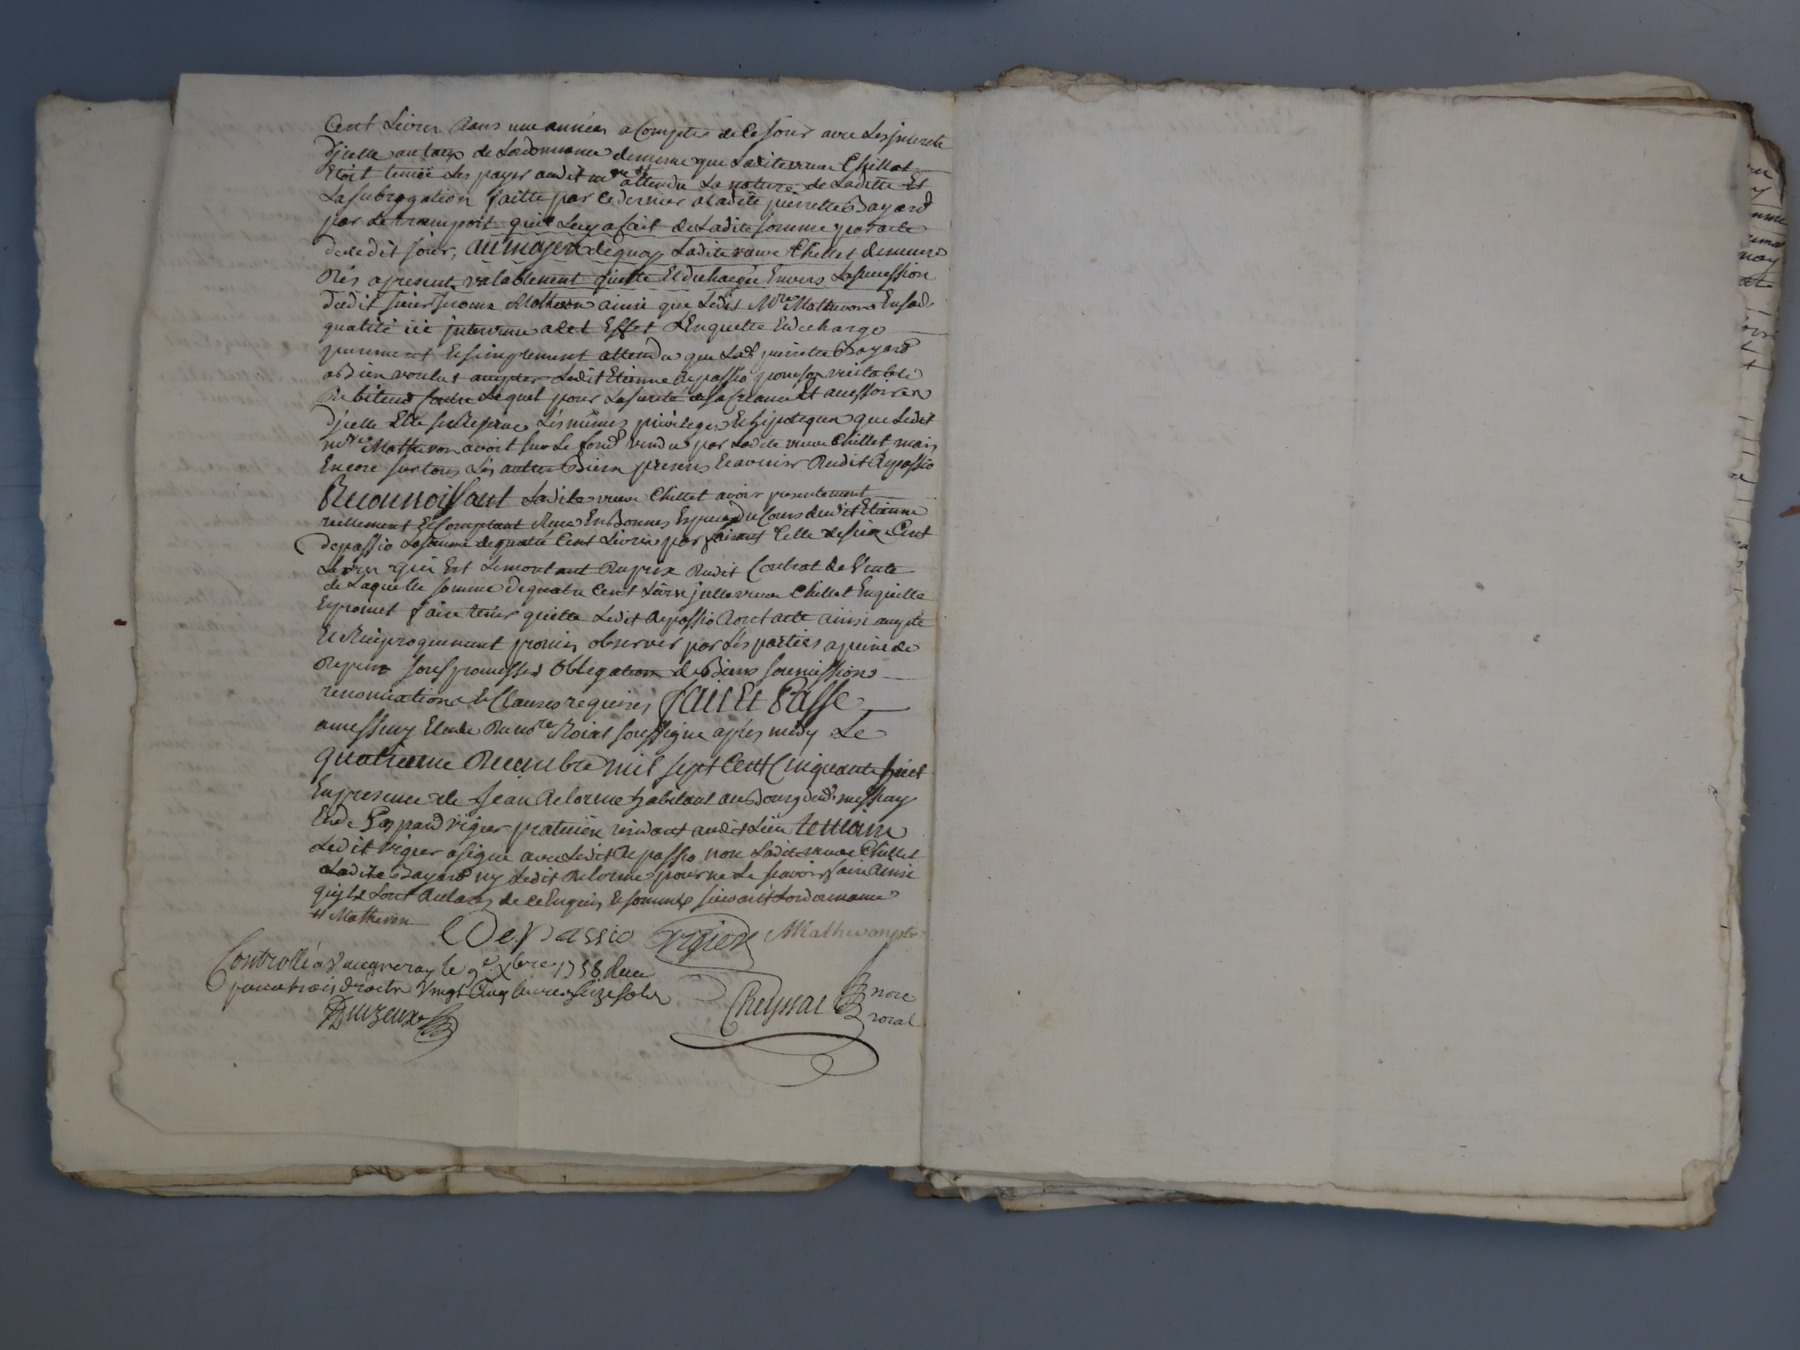 Cent Livres dans une année a Compter de Ce jour avec Les jnterests
d'jcelle au taux de Lordonnance de meme que Laditte veuve Chillet
Etoit tenüe Les payer audit me attendu La nature de La dette Et
La subrogation faitte par Ce dernier a Ladite pierrette Bayard
par Le transport quil Luy a fait de Ladite somme par acte
de Cedit jour, au moyen de quoy Ladite veuve Chillet demeure
Dés apresent valablement quitte Et dechargée Envers La succession
dudit sieur mathevon ainsi que Ledit Mre Mathevon En sad.
qualité icy jntervenu a Cet Effet L'Enquitte Et decharge
purement Et simplement attendu que Lad. pierrette Bayard
a Bien voulut accepter Ledit Etienne depassio pour son veritable
debiteur Lequel pour La sureté de sa Creance Et accessoires
d'jcelle Elle se Reserve Les mêmes privileges Et hipoteques que Ledit
mre Mathevon avoit sur Le fond vendu par Ladite veuve Chillet mais
Encore sur tous Les autres Biens presens Et avenir dudit depassio
Reconnoissant Ladite veuve Chillet avoir presentement
réellement Et Comptant Reçu En Bonnes Especes du Cours dudit Etienne
depassio La somme de quatre Cent Livres par faisant Celle de six Cent
Livres qui Est Le montant du prix dudit Contrat de Vente
de Laquelle somme de quatre Cent Livres jcelle veuve Chillet En quitte
Et promet faire tenir quitte Ledit depassio dont acte ainsi accepté
Et Reciproquement promis observer par Les parties a peine de
depens sous promesses obligation de Biens soumissions
renonciations Et Clauses requises fait Et Passé
a messimy Etude du nore Roial soussigné aprés midy Le
quatrieme decembre mil sept Cent Cinquante huit
En presence de Jean delorme habitant au Bourg dud. messimy
Et de Gaspard vigier praticien residant audit Lieu temoins
Ledit vigier a signé avec Ledit depassio non Ladite veuve Chillet
Ladite Bayard ny Ledit delorme pour ne Le scavoir faire ainsi
quils L'ont declaré de Ce Enquis Et sommés suivant Lordonnance
# Mathevon
De passio vigier Mathevon ptre
Controllé a Vaugneray le 9e Xbre 1758 Reçu
pour trois droits vingt Cinq livres seize sols
Cheyssac nore
roial